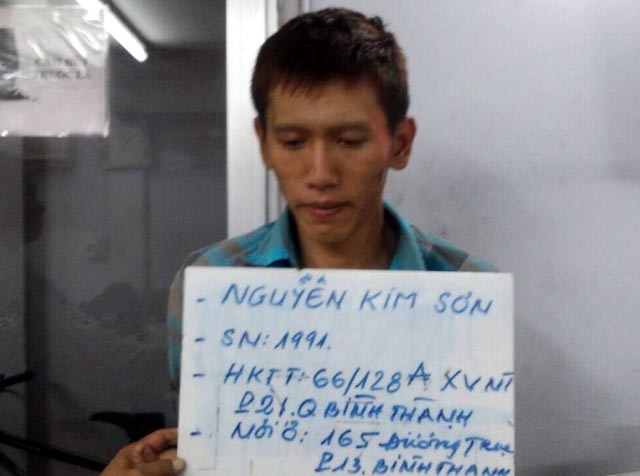 - NGUYỄN KIM SƠN
- SN: 1991.
- HKTT: 66/128A XVNT
P21. Q BÌNH THẠNH
- NƠI Ở: 165 Đường Trục
P13. BÌNH THẠNH